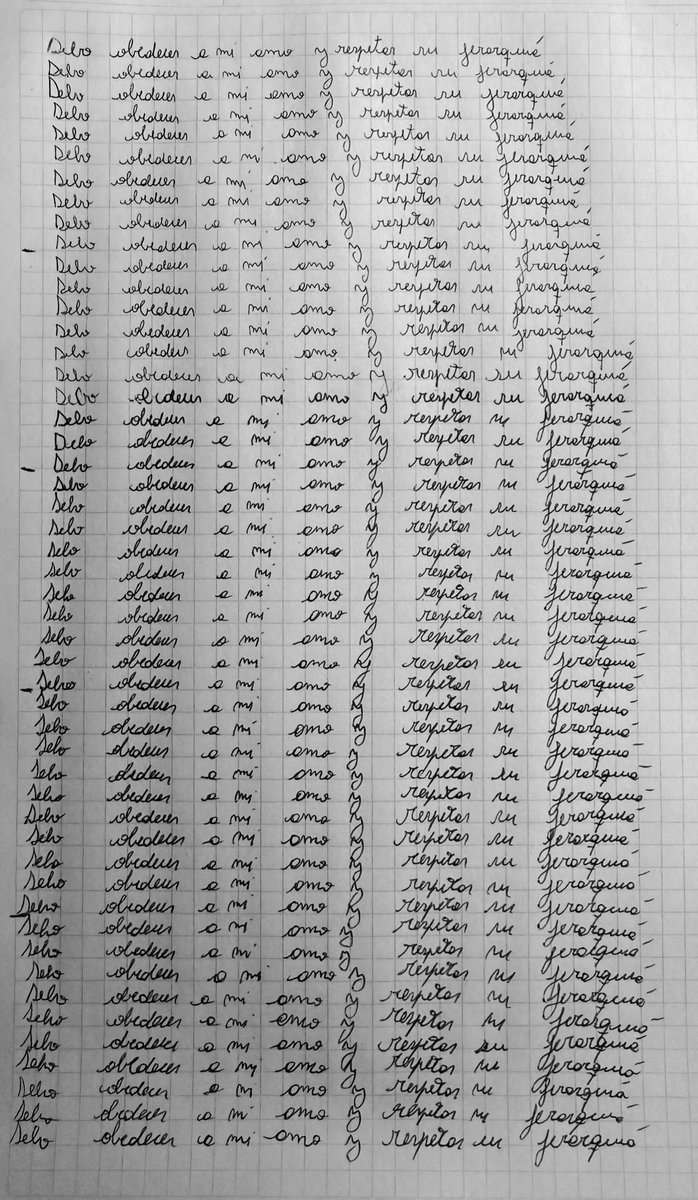 Debo obedecer a mi amo y respetar su jerarquiá
Debo obedecer a mi amo y respetar su jerarquiá
Debo obedecer a mi amo y respetar su jerarquiá
Debo obedecer a mi amo y respetar su jerarquiá
Debo obedecer a mi amo y respetar su jerarquiá
Debo obedecer a mi amo y respetar su jerarquiá
Debo obedecer a mi amo y respetar su jerarquiá
Debo obedecer a mi amo y respetar su jerarquiá
Debo obedecer a mi amo y respetar su jerarquiá
Debo obedecer a mi amo y respetar su jerarquiá
Debo obedecer a mi amo y respetar su jerarquiá
Debo obedecer a mi amo y respetar su jerarquiá
Debo obedecer a mi amo y respetar su jerarquiá
Debo obedecer a mi amo y respetar su jerarquiá
Debo obedecer a mi amo y respetar su jerarquiá
Debo obedecer a mi amo y respetar su jerarquiá
Debo obedecer a mi amo y respetar su jerarquiá
Debo obedecer a mi amo y respetar su jerarquiá
Debo obedecer a mi amo y respetar su jerarquiá
Debo obedecer a mi amo y respetar su jerarquiá
Debo obedecer a mi amo y respetar su jerarquiá
Debo obedecer a mi amo y respetar su jerarquiá
Debo obedecer a mi amo y respetar su jerarquiá
Debo obedecer a mi amo y respetar su jerarquiá
Debo obedecer a mi amo y respetar su jerarquiá
Debo obedecer a mi amo y respetar su jerarquiá
Debo obedecer a mi amo y respetar su jerarquiá
Debo obedecer a mi amo y respetar su jerarquiá
Debo obedecer a mi amo y respetar su jerarquiá
Debo obedecer a mi amo y respetar su jerarquiá
Debo obedecer a mi amo y respetar su jerarquiá
Debo obedecer a mi amo y respetar su jerarquiá
Debo obedecer a mi amo y respetar su jerarquiá
Debo obedecer a mi amo y respetar su jerarquiá
Debo obedecer a mi amo y respetar su jerarquiá
Debo obedecer a mi amo y respetar su jerarquiá
Debo obedecer a mi amo y respetar su jerarquiá
Debo obedecer a mi amo y respetar su jerarquiá
Debo obedecer a mi amo y respetar su jerarquiá
Debo obedecer a mi amo y respetar su jerarquiá
Debo obedecer a mi amo y respetar su jerarquiá
Debo obedecer a mi amo y respetar su jerarquiá
Debo obedecer a mi amo y respetar su jerarquiá
Debo obedecer a mi amo y respetar su jerarquiá
Debo obedecer a mi amo y respetar su jerarquiá
Debo obedecer a mi amo y respetar su jerarquiá
Debo obedecer a mi amo y respetar su jerarquiá
Debo obedecer a mi amo y respetar su jerarquiá
Debo obedecer a mi amo y respetar su jerarquiá
Debo obedecer a mi amo y respetar su jerarquiá